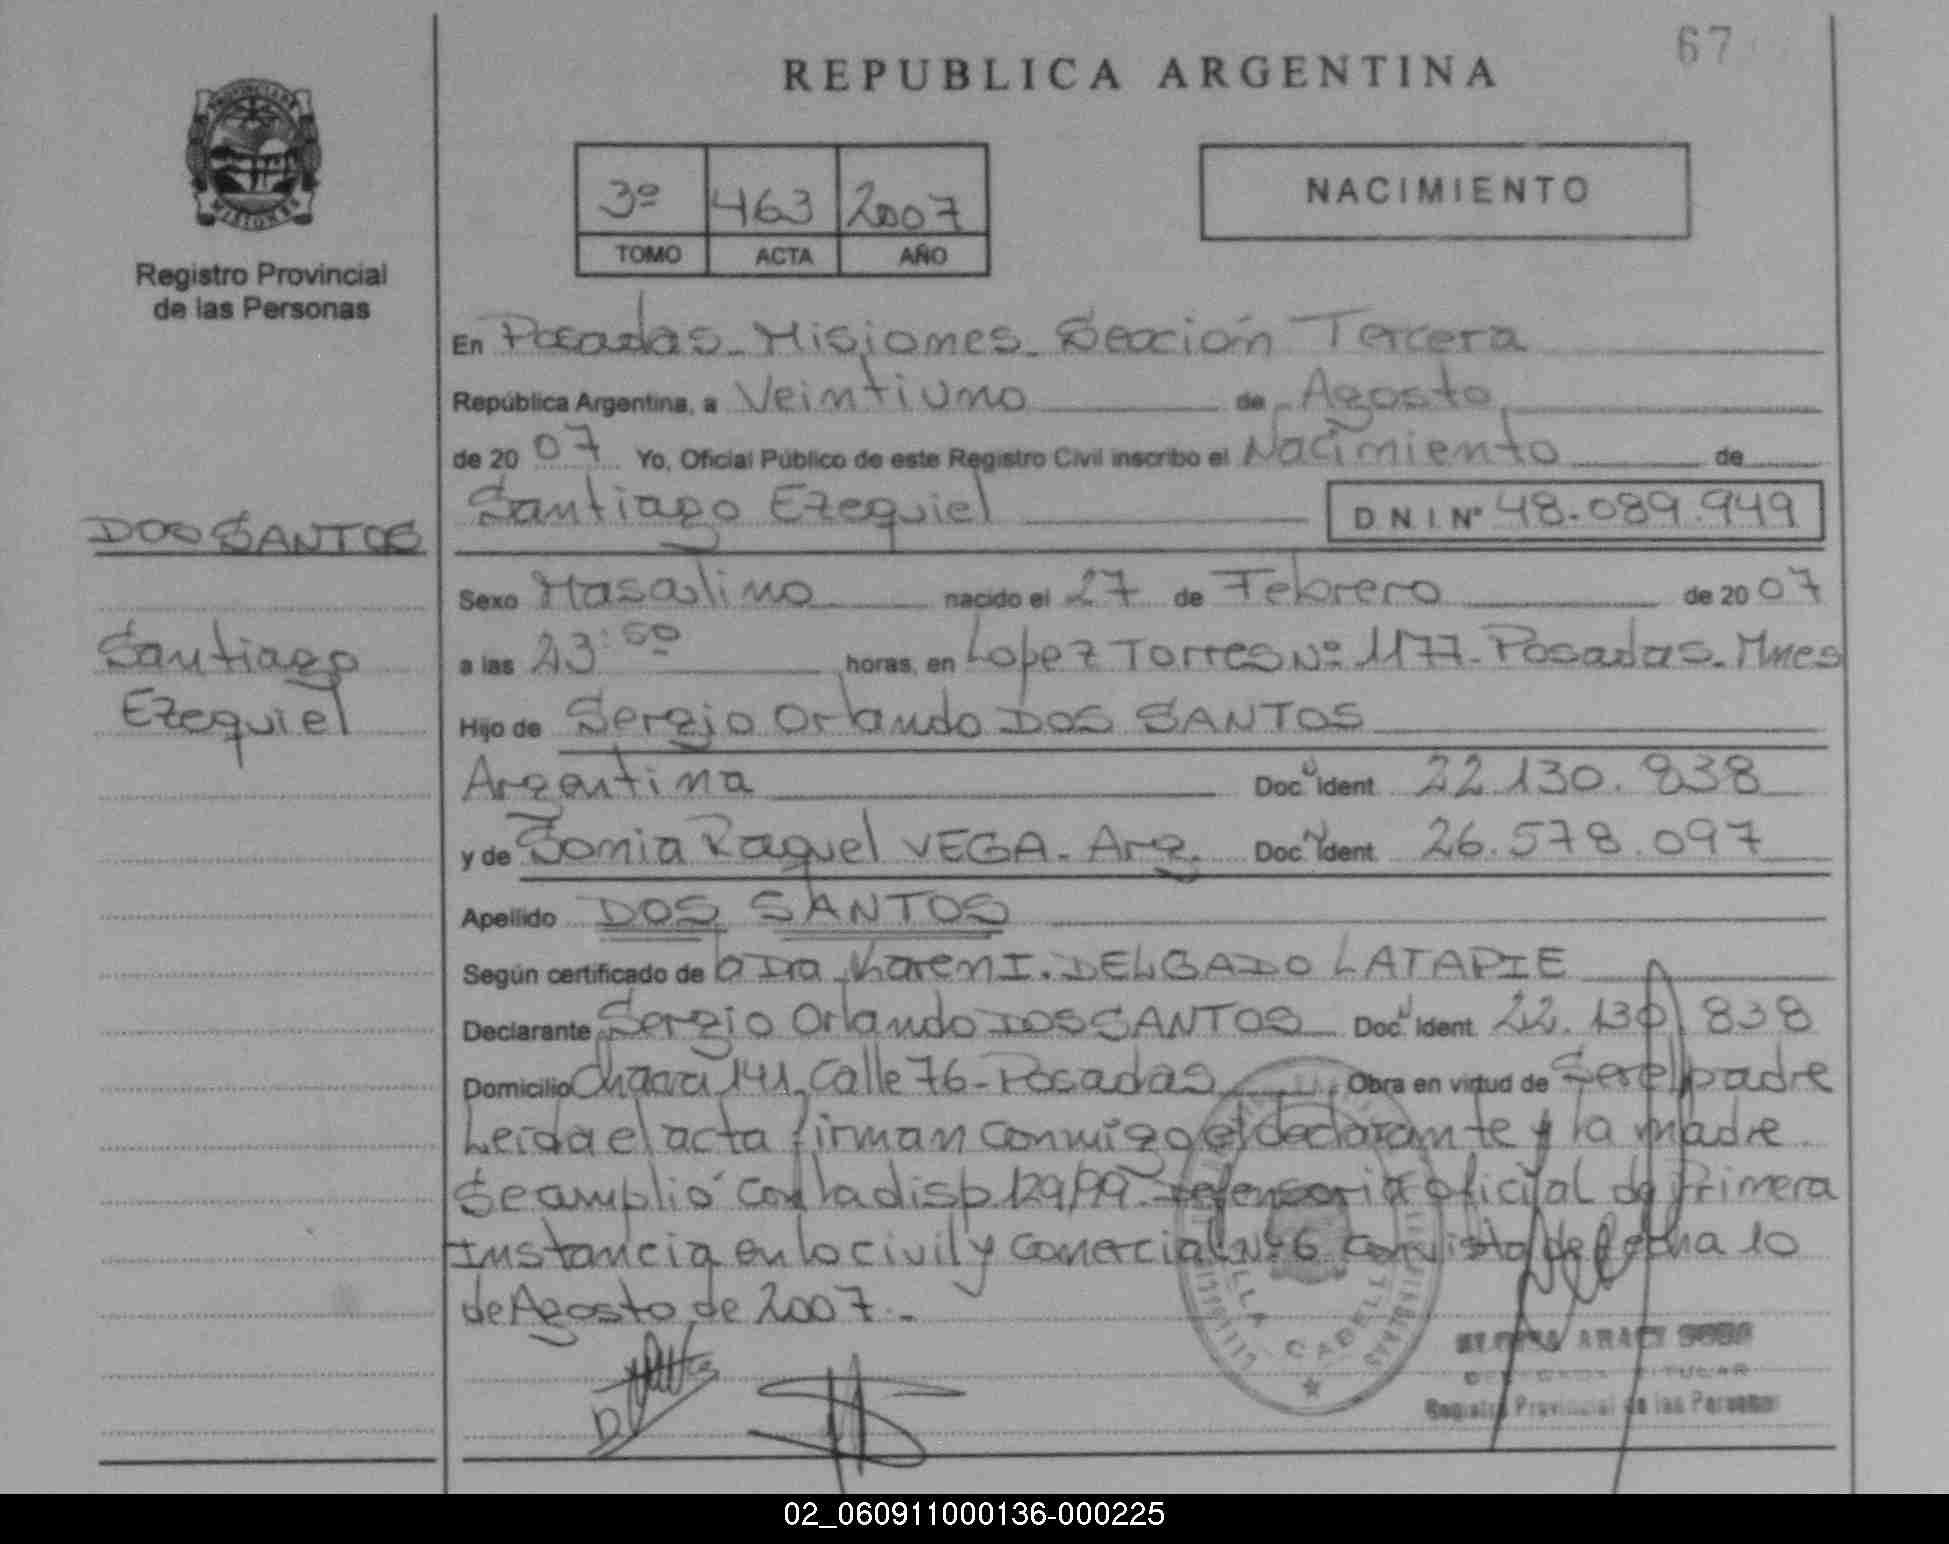 67
REPUBLICA ARGENTINA
PROVINCIA DE
MISIONES
Registro Provincial
de las Personas
3º 463 2007
TOMO ACTA AÑO
NACIMIENTO
En Posadas - Misiones - Sección Tercera
República Argentina, a Veintiuno de Agosto
de 20 07 Yo, Oficial Público de este Registro Civil inscribo el Nacimiento de
Santiago Ezequiel D N I Nº 48.089.949
DOS SANTOS
Sexo Masculino nacido el 27 de Febrero de 20 07
Santiago
Ezequiel
a las 23:50 horas, en Lopez Torres Nº 1177 - Posadas - Mnes
Hijo de Sergio Orlando DOS SANTOS
Argentina Doc. ident. 22.130.838
y de Sonia Raquel VEGA - Arg. Doc. ident. 26.578.097
Apellido DOS SANTOS
Según certificado de la Dra. Karen I. DELGADO LATAPIE
Declarante Sergio Orlando DOS SANTOS Doc. ident. 22.130.838
Domicilio Chacra 141, Calle 76 - Posadas Obra en virtud de Ser el padre
Leida el acta firman conmigo el declarante y la madre
Se amplió con la disp. 129/99 - Defensoria oficial de Primera
Instancia en lo civil y Comercial Nº 6 con vista de fecha 10
de Agosto de 2007.-
ARACY
TITULAR
Registro Provincial de las Personas
02_060911000136-000225